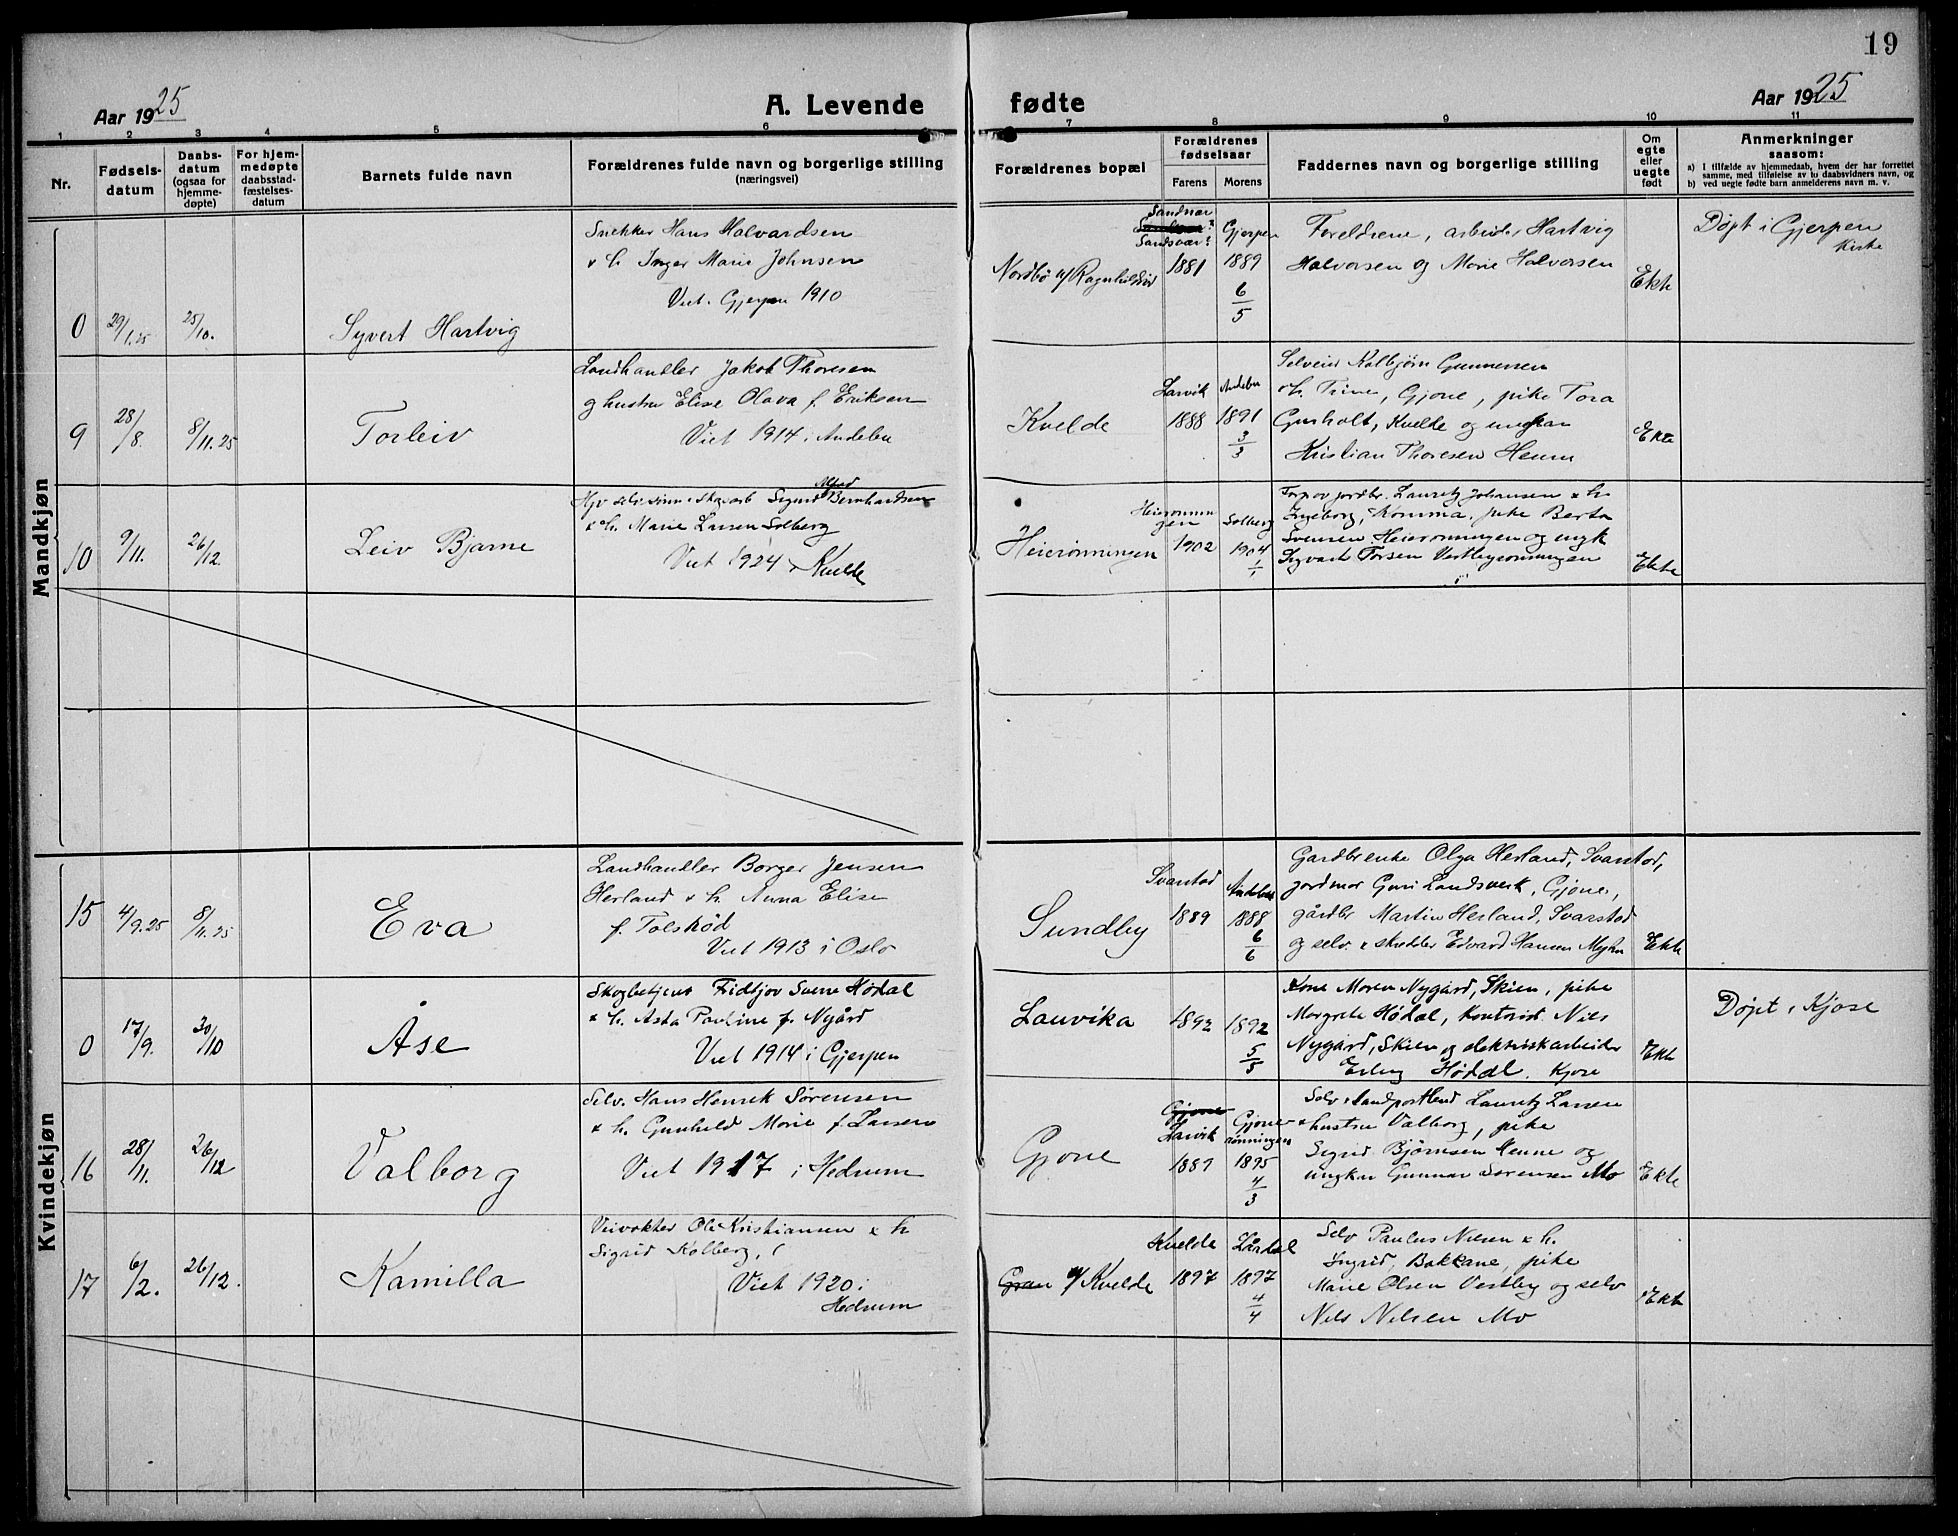 19
Aar 1925
A. Levende fødte
Aar 1925
1 2 3 4 5 6 7 8 9 10 11
Nr.
Fødsels-
datum
Daabs-
datum
(ogsaa for
hjemme-
døpte)
For hjem-
medøpte
daabsstad-
fæstelses-
datum
Barnets fulde navn
Forældrenes fulde navn og borgerlige stilling
(næringsvei)
Forældrenes bopæl
Forældrenes
fødselsaar
Farens
Morens
Faddernes navn og borgerlige stilling
Om
egte
eller
uegte
født
Anmerkninger
saasom:
a) I tilfælde av hjemmedaab, hvem der har forrettet
samme, med tilføielse av to daabsvidners navn, og
b) ved uegte fødte barn anmelderens navn m. v.
Mandkjøn
0
29/1.25
25/10.
Syvert Hartvig
Snekker Hans Halvardsen
& h. Inger Marie Johnsen
Viet. Gjerpen 1910
Nordbø
Sandsvær?
1881
Gjerpen
1889
6/5
Foreldrene, arbeider Hartvig
Halvorsen og Marie Halvorsen
Ekte
Døpt i Gjerpen
Kirke
9
28/8.
8/11.25
Torleiv
Landhandler Jakob Thoresen
og hustru Elise Olava f. Eriksen
Viet 1914 i Andebu
Kvelde
Larvik
1888
Andebu
1891
3/3
Selveier Kolbjørn Gunnersen
& h. Trine, Gjone, pike Tora
Gusholt, Kvelde og ungkar
Kristian Thoresen Henun
Ekte
10
9/11.
26/12.
Leiv Bjarne
Sigurd Alfred Bernhardsen
& h. Marie Larsen Solberg
Viet 1924 i Kvelde
Heierønningen
Heierønnin
gen
1902
Solberg
1904
1/1
jordbr. Lauritz Johansen & h.
Ingeborg, Komma. pike Berta
Svensen Heierønningen og ungk
Ekte
Kvindekjøn
15
4/9.25
8/11.25
Eva
Landhandler Borger Jensen
Herland & h. Anna Elise
f. Tolskød
Viet 1913 i Oslo
Sundby
Svarstad
1889
Andebu
1888
6/6
Gardbrenke Olga Herland, Svarstad,
jordmor Guri Landsverk, Gjone,
gårdbr Martin Herland, Svarstad
og selv. & skredder Edvard Hansen
Ekte
0
17/9.
30/10
Åse
Skogbetjent Fridtjov Sverre Hødal
& h. Asta Pauline f. Nygård
Viet 1914 i Gjerpen
Lauvika
1892
1892
5/5
Kone Maren Nygård, Skien, pike
Margrete Hødal, kontorist Nils
Nygård, Skien og elektriskarbeider
Erling Hødal. Kjose
Ekte
Døpt i Kjose
16
28/11.
26/12
Valborg
Selv. Hans Henrik Sørensen
& h. Gunhild Marie f. Larsen
Viet 1917 i Hedrum
Gjone
Gjone
Larvik
1889
Gjone-
rønningen
1895
4/3
Selv & landpostbud Lauritz Larsen
& hustru Valborg, pike
Sigrid Bjørnsen Henne og
ungkar Gunnar Sørensen Mo
Ekte
17
6/2.
26/12.
Kamilla
Veivokter Ole Kristiansen & h
Sigrid Kolberg,
Viet 1920 i
Hedrum
Gran u/ Kvelde
Kvelde
1897
Lårdal
1897
4/4
Selv Paulus Nilsen & h.
Ingrid, Bakkane, pike
Marie Olsen Vestby og selv
Nils Nilsen Mo
Ekte